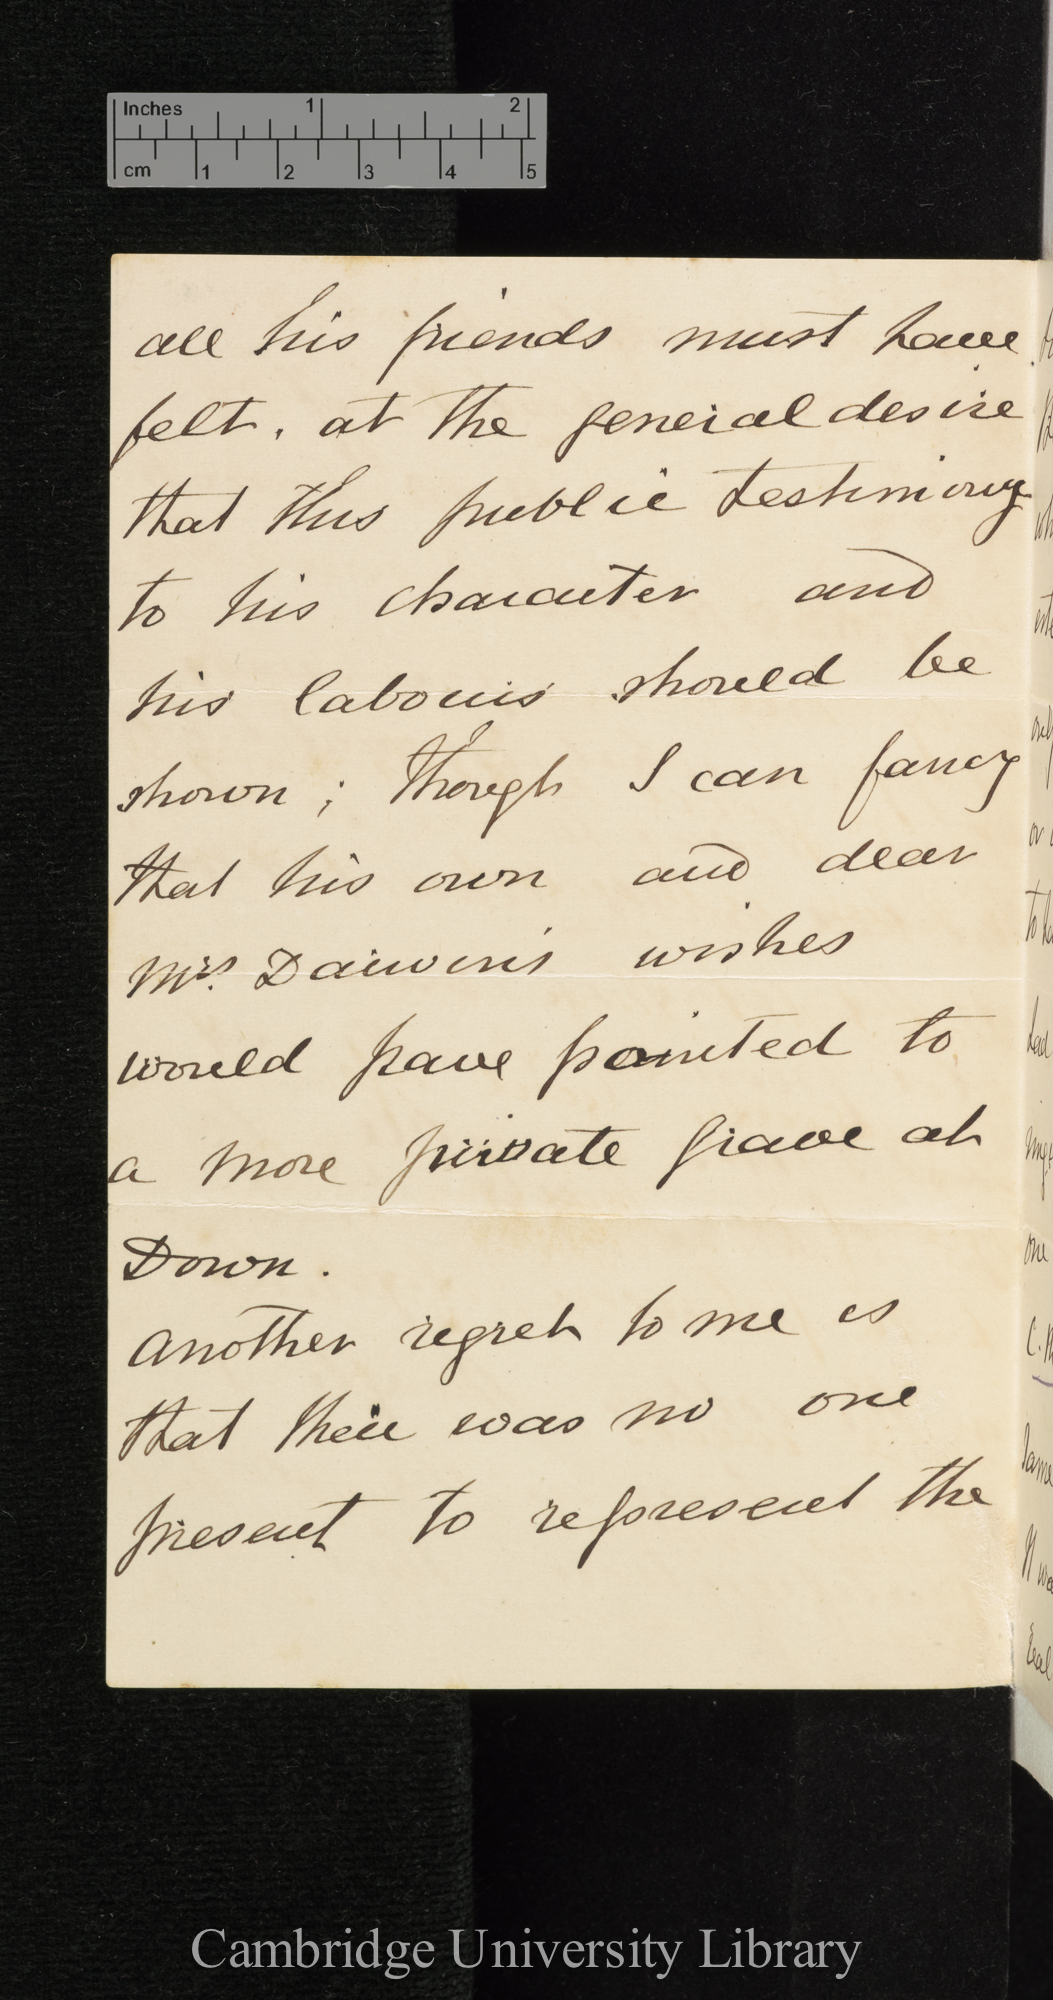 Inches 1 2
cm 1 2 3 4 5
all his friends must have
felt, at the general desire
that this public testimony
to his character and
his labours should be
shown; though I can fancy
that his own and dear
Mrs. Darwin's wishes
would have pointed to
a more private grave at
Down.
Another regret to me is
that there was no one
present to represent the
Cambridge University Library